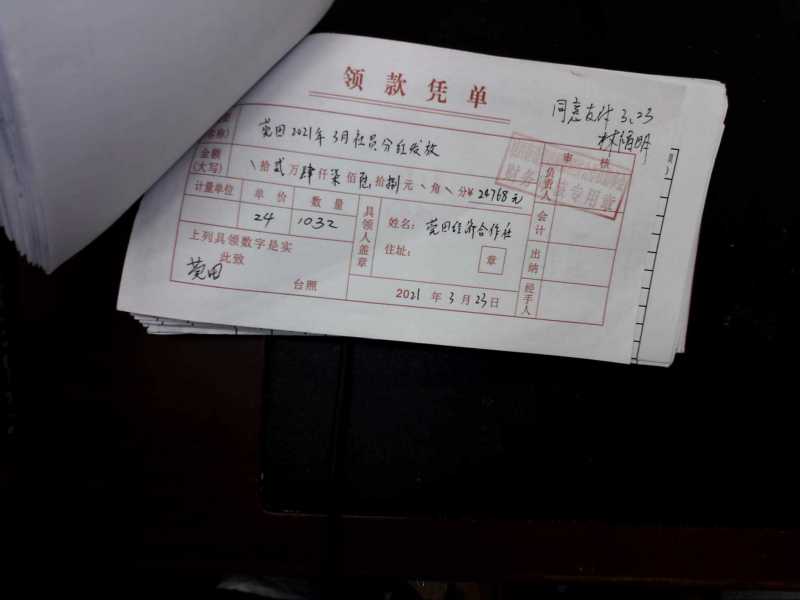 领款凭单
同意支付 3.23
莞田2021年3月社员分红发放
金额
(大写)
拾贰万肆仟柒佰陆拾捌元 角 分¥ 24768元
审核
计量单位 单价 数量
24 1032
上列具领数字是实
此致
莞田
台照
具领人盖章
姓名: 莞田经济合作社
住址:
章
2021年3月23日
负责人
会计
出纳
经手人
财务
专用章